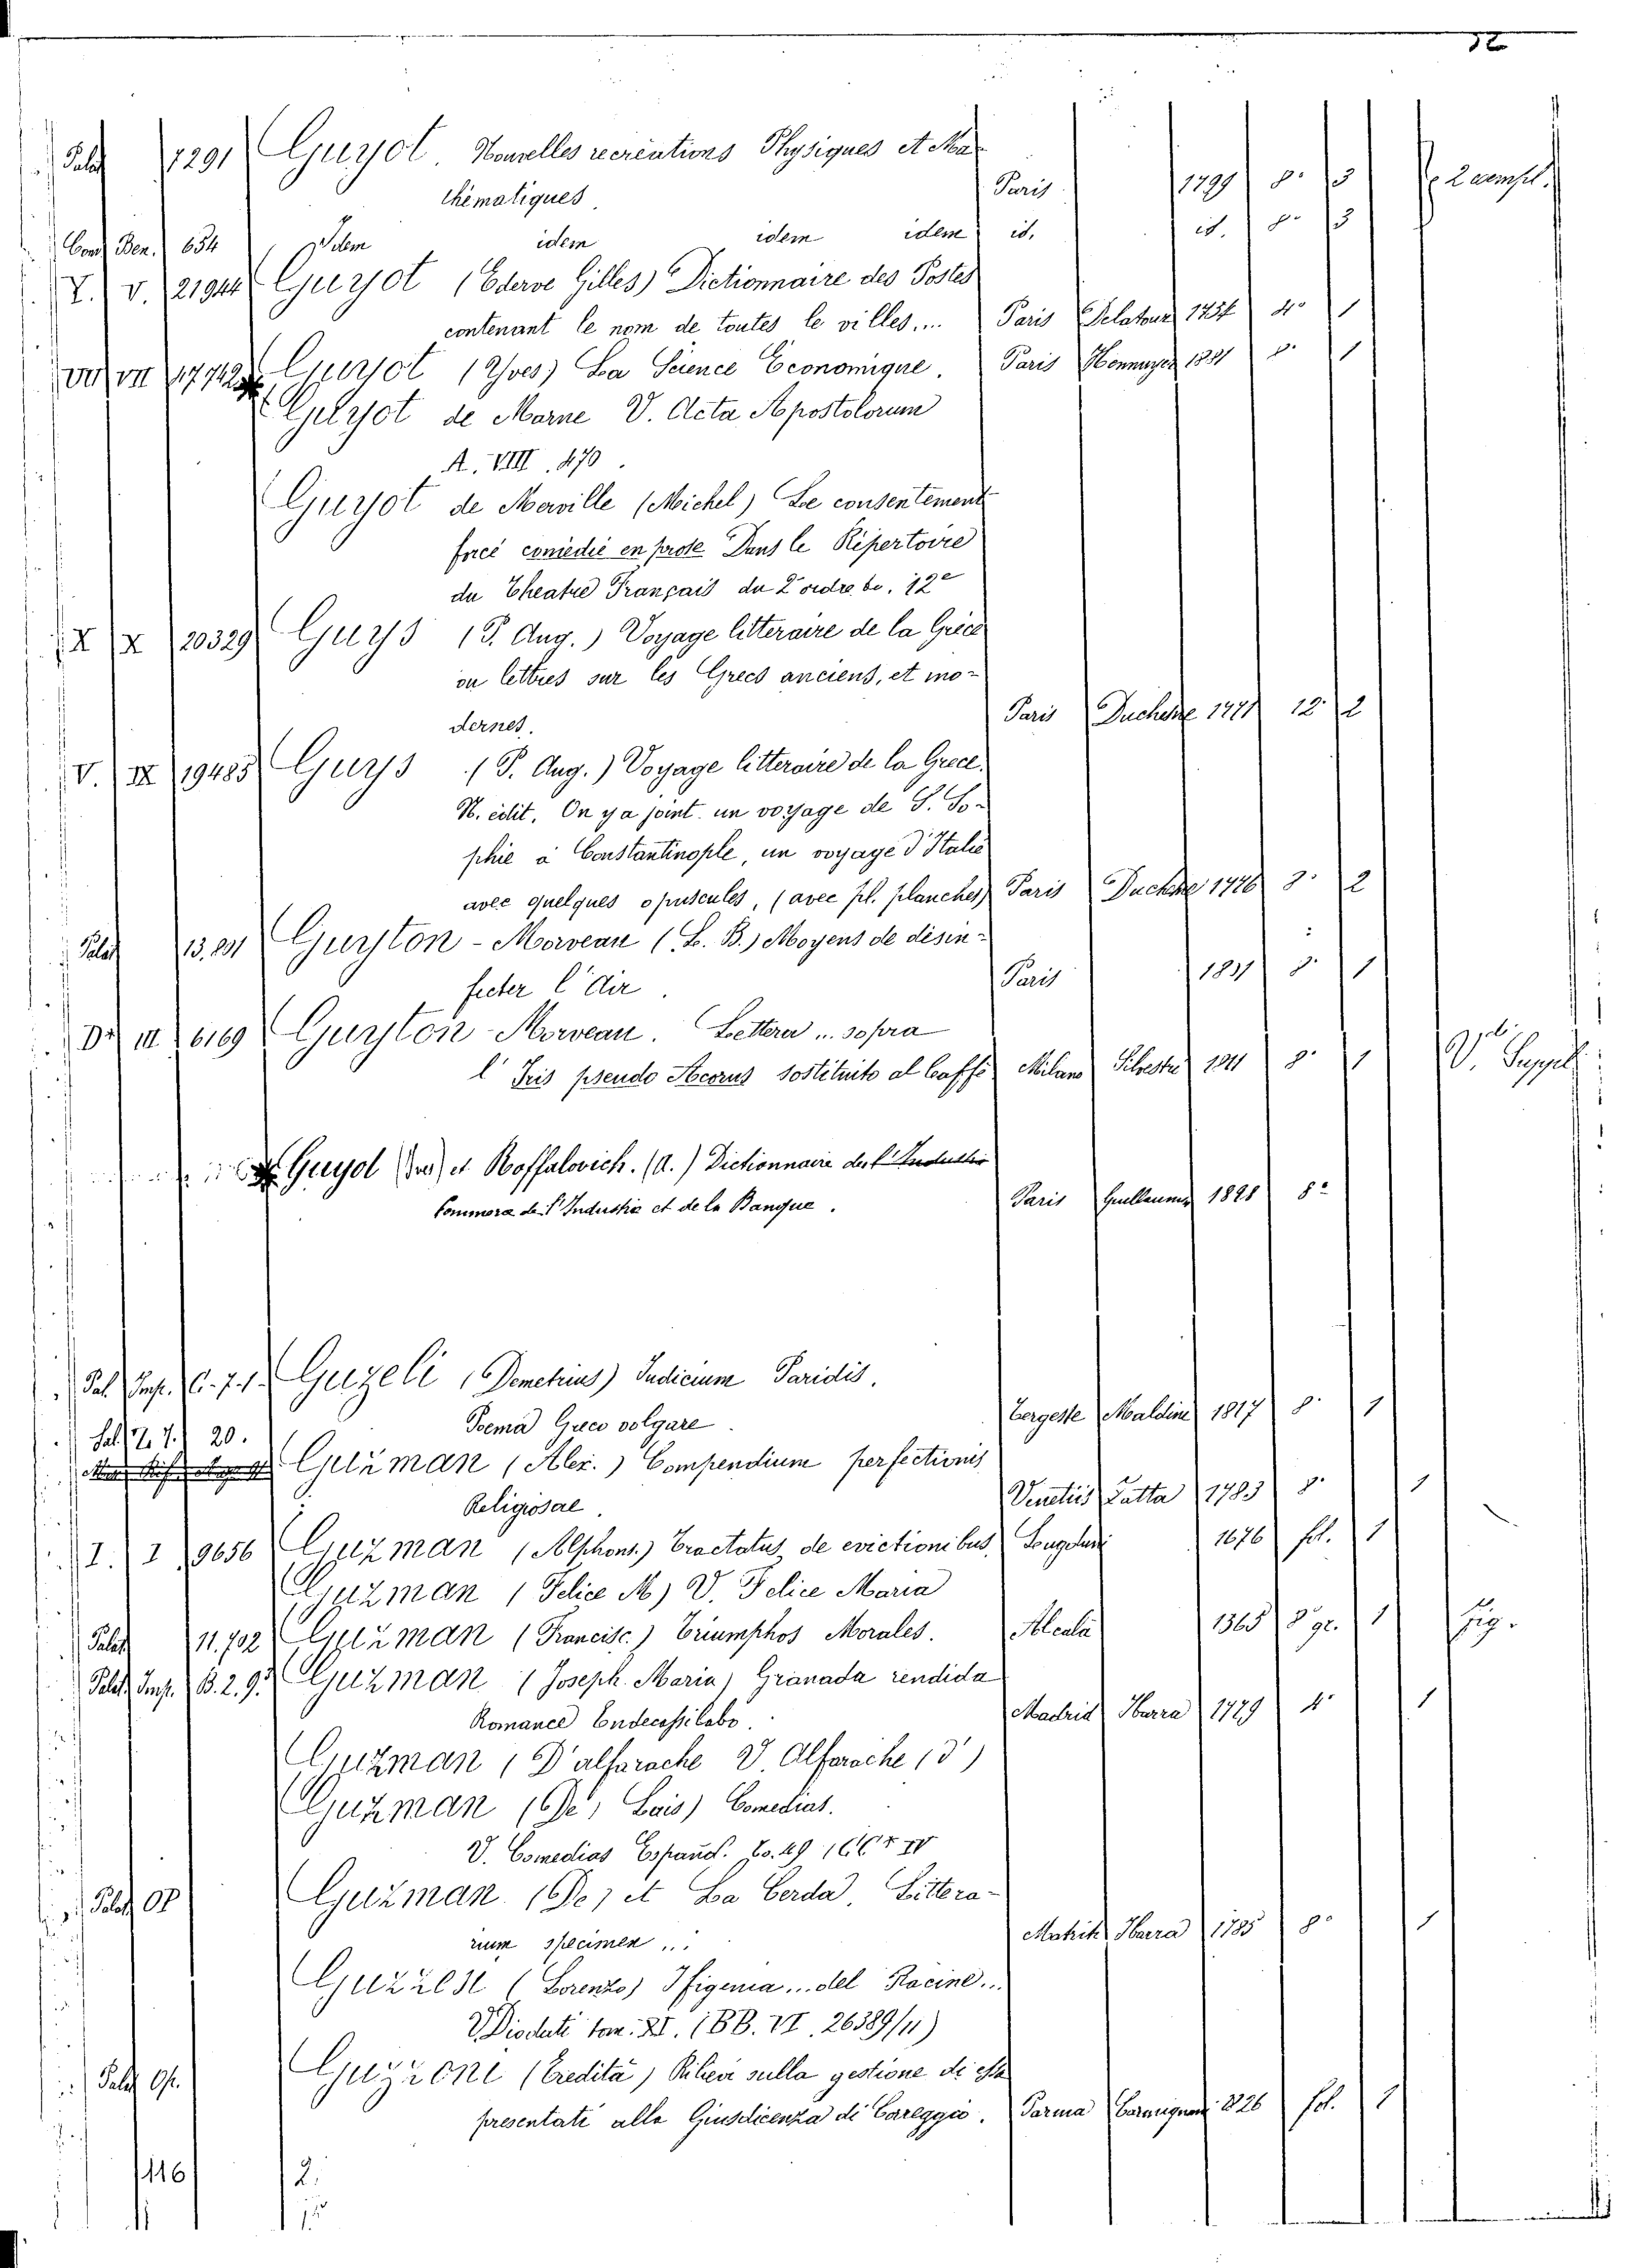 52
Palat 1291 Guyot. Nouvelles recréations Physiques et Ma-
thématiques Paris 1799 8° 3 2 exempl.
Cons. Ben. 654 Idem idem idem idem id. id. 8° 3
V. V. 21944 Guyot (Ederve Gilles) Dictionnaire des Postes
contenant le nom de toutes le villes.... Paris Delatour 1754 4° 1
VII VII 17712 Guyot (Yves) La Science Economique. Paris Hennuyer 1881 8° 1
Guyot de Marne V. Acta Apostolorum
A. VIII. 470.
Guyot de Merville (Michel) Le consentement
forcé comédie en prose Dans le Répertoire
du Theatre Français du 2 ordre to. 12e
X X 20329 Guys (P. Aug.) Voyage litteraire de la Grèce
ou lettres sur les Grecs anciens, et mo-
dernes. Paris Duchesne 1771 12° 2
V. IX 19485 Guys (P. Aug.) Voyage litteraire de la Grece.
N. edit. On y a joint un voyage de S. So-
phie à Constantinople, un voyage d'Italie
avec quelques opuscules, (avec pl. planches) Paris Duchesne 1776 8° 2
Palat 13,891 Guyton-Morveau (L. B.) Moyens de désin-
fecter l'Air. Paris 1801 8° 1
III 6169 Guyton-Morveau. Lettera... sopra
l'Iris pseudo Acorus sostituito al Caffè Milano Silvestri 1811 8° 1 V. Suppl.
Guyot (Yves) et Raffalovich. (A.) Dictionnaire de l'Industrie
Commerce de l'Industrie et de la Banque. Paris Guillaumin 1898 8°
Pal. Imp. C. 7.1. Guzeli (Demetrius) Iudicium Paridis.
Poema Greco volgare. Tergeste Maldini 1817 8° 1
Sal. Z. 7. 20. Guzman (Alex.) Compendium perfectionis
Religiosae. Venetiis Zatta 1783 8° 1
I. I 9656 Guzman (Alphons.) Tractatus de evictionibus, Lugduni 1676 fol. 1
Guzman (Felice M.) V. Felice Maria
Palat 11.702 Guzman (Francisc.) Triumphos Morales. Alcala 1565 8 gr. 1 fig.
Palat. Imp. B. 2. 9. Guzman (Joseph. Maria) Granada rendida
Romance Endecassilabo. Madrid Ibarra 1779 4° 1
Guzman (D'alfarache V. Alfarache (d')
Guzman (De, Luis) Comedias.
V. Comedias Espanol. to. 49
Palat. Op. Guzman (De) et La Cerda, Littera-
rium specimen... Matriti Ibarra 1785 8° 1
Guzzesi (Lorenzo) Ifigenia... del Racine...
V. Diodati tom. XI. (BB. VI. 26389/11)
Palat. Op. Guzzoni (Eredità) Rilievi sulla gestione di essa
presentati alla Giusdicenza di Coreggio. Parma Carmignani 1826 fol. 1
1116 2.
15